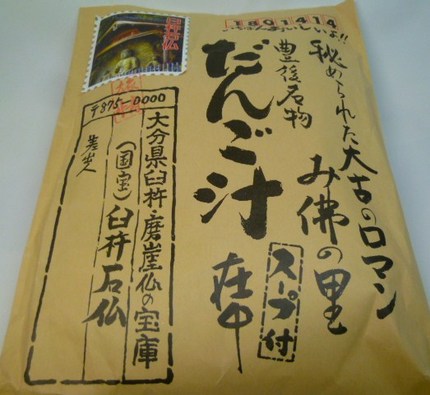 1801414
いちばんおいしいよ!!
秘められた太古のロマン
み佛の里
豊後名物
だんご汁
在中
スープ付
臼杵石仏
〒875-0000
大分県臼杵磨崖仏の宝庫
(国宝)臼杵石仏
差出人